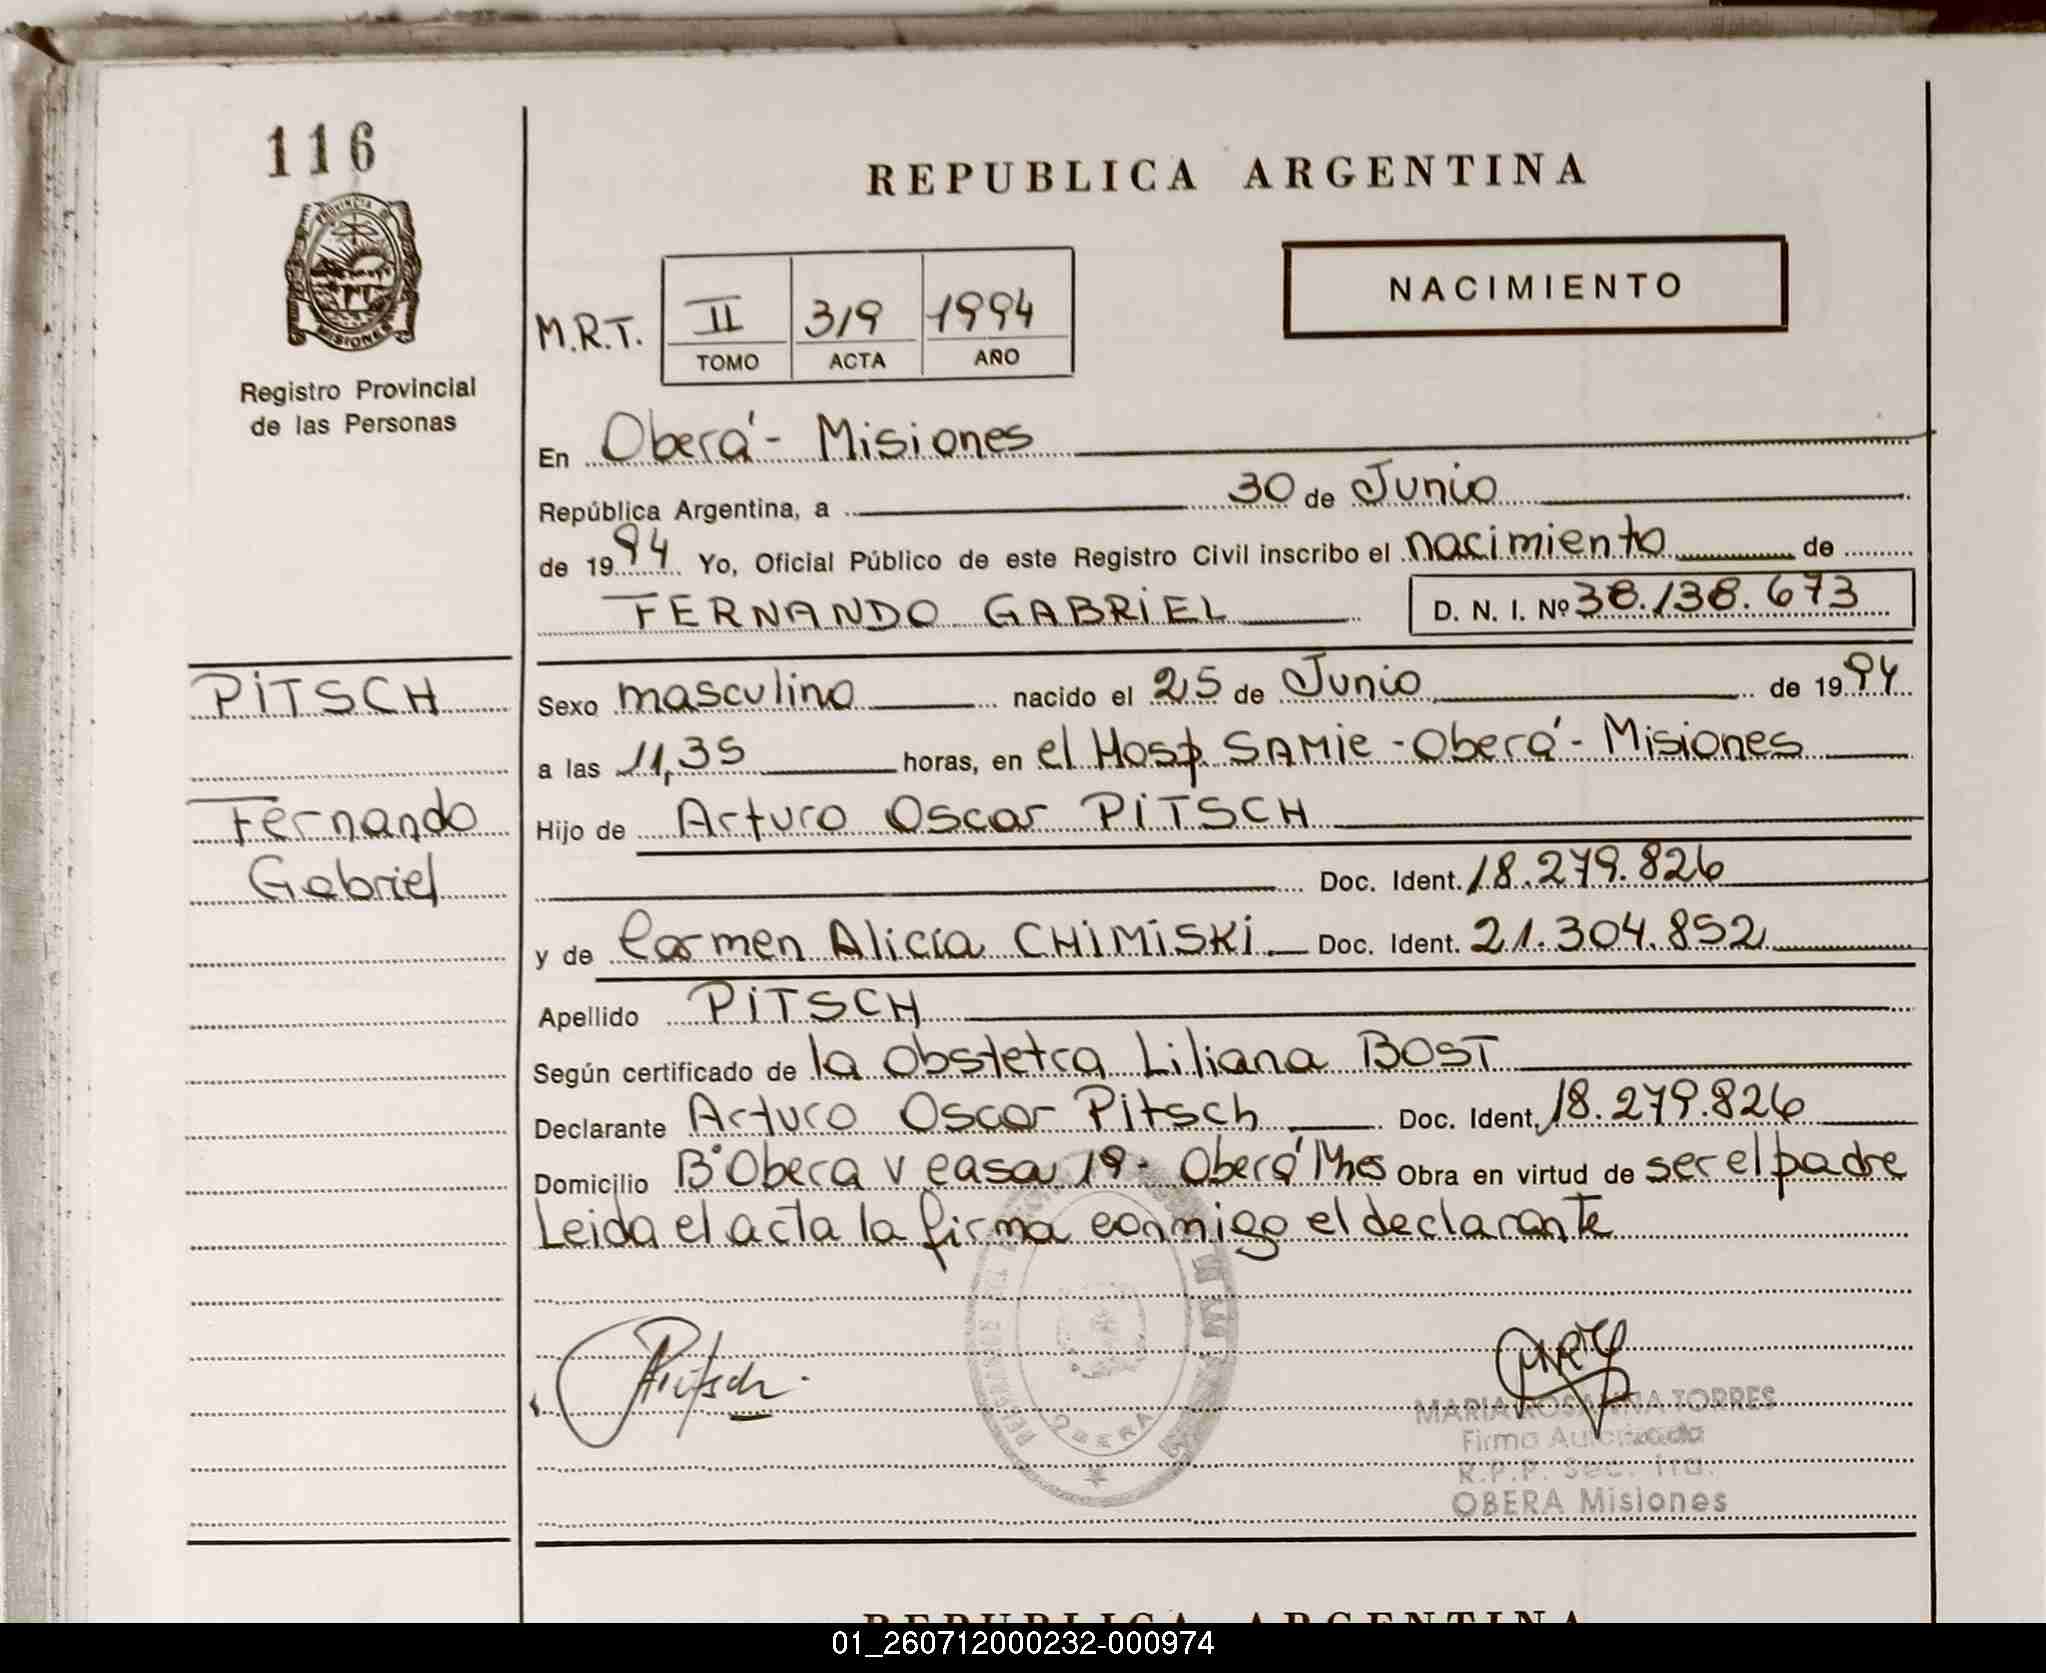 116
REPUBLICA ARGENTINA
PROVINCIA DE
MISIONES
Registro Provincial
de las Personas
NACIMIENTO
M.R.T. II 319 1994
TOMO ACTA AÑO
En Oberá - Misiones
República Argentina, a 30 de Junio
de 1994 Yo, Oficial Público de este Registro Civil inscribo el nacimiento de
FERNANDO GABRIEL D. N. I. Nº 38.138.673
PITSCH
Sexo masculino nacido el 25 de Junio de 1994
a las 11,35 horas, en el Hosp SAMIC - Oberá - Misiones
Fernando
Gabriel
Hijo de Arturo Oscar PITSCH
Doc. Ident. 18.279.826
y de Carmen Alicia CHIMISKI Doc. Ident. 21.304.852
Apellido PITSCH
Según certificado de la obstetra Liliana BOST
Declarante Arturo Oscar Pitsch Doc. Ident. 18.279.826
Domicilio Bº Obera V casa 19 - Oberá Mnes Obra en virtud de ser el padre
Leida el acta la firma conmigo el declarante
Pitsch
MARIA ROSANNA TORRES
Firma Autorizada
R.P.P. Sec. 1ra.
OBERA Misiones
OBERA
REPUBLICA ARGENTINA
01_260712000232-000974